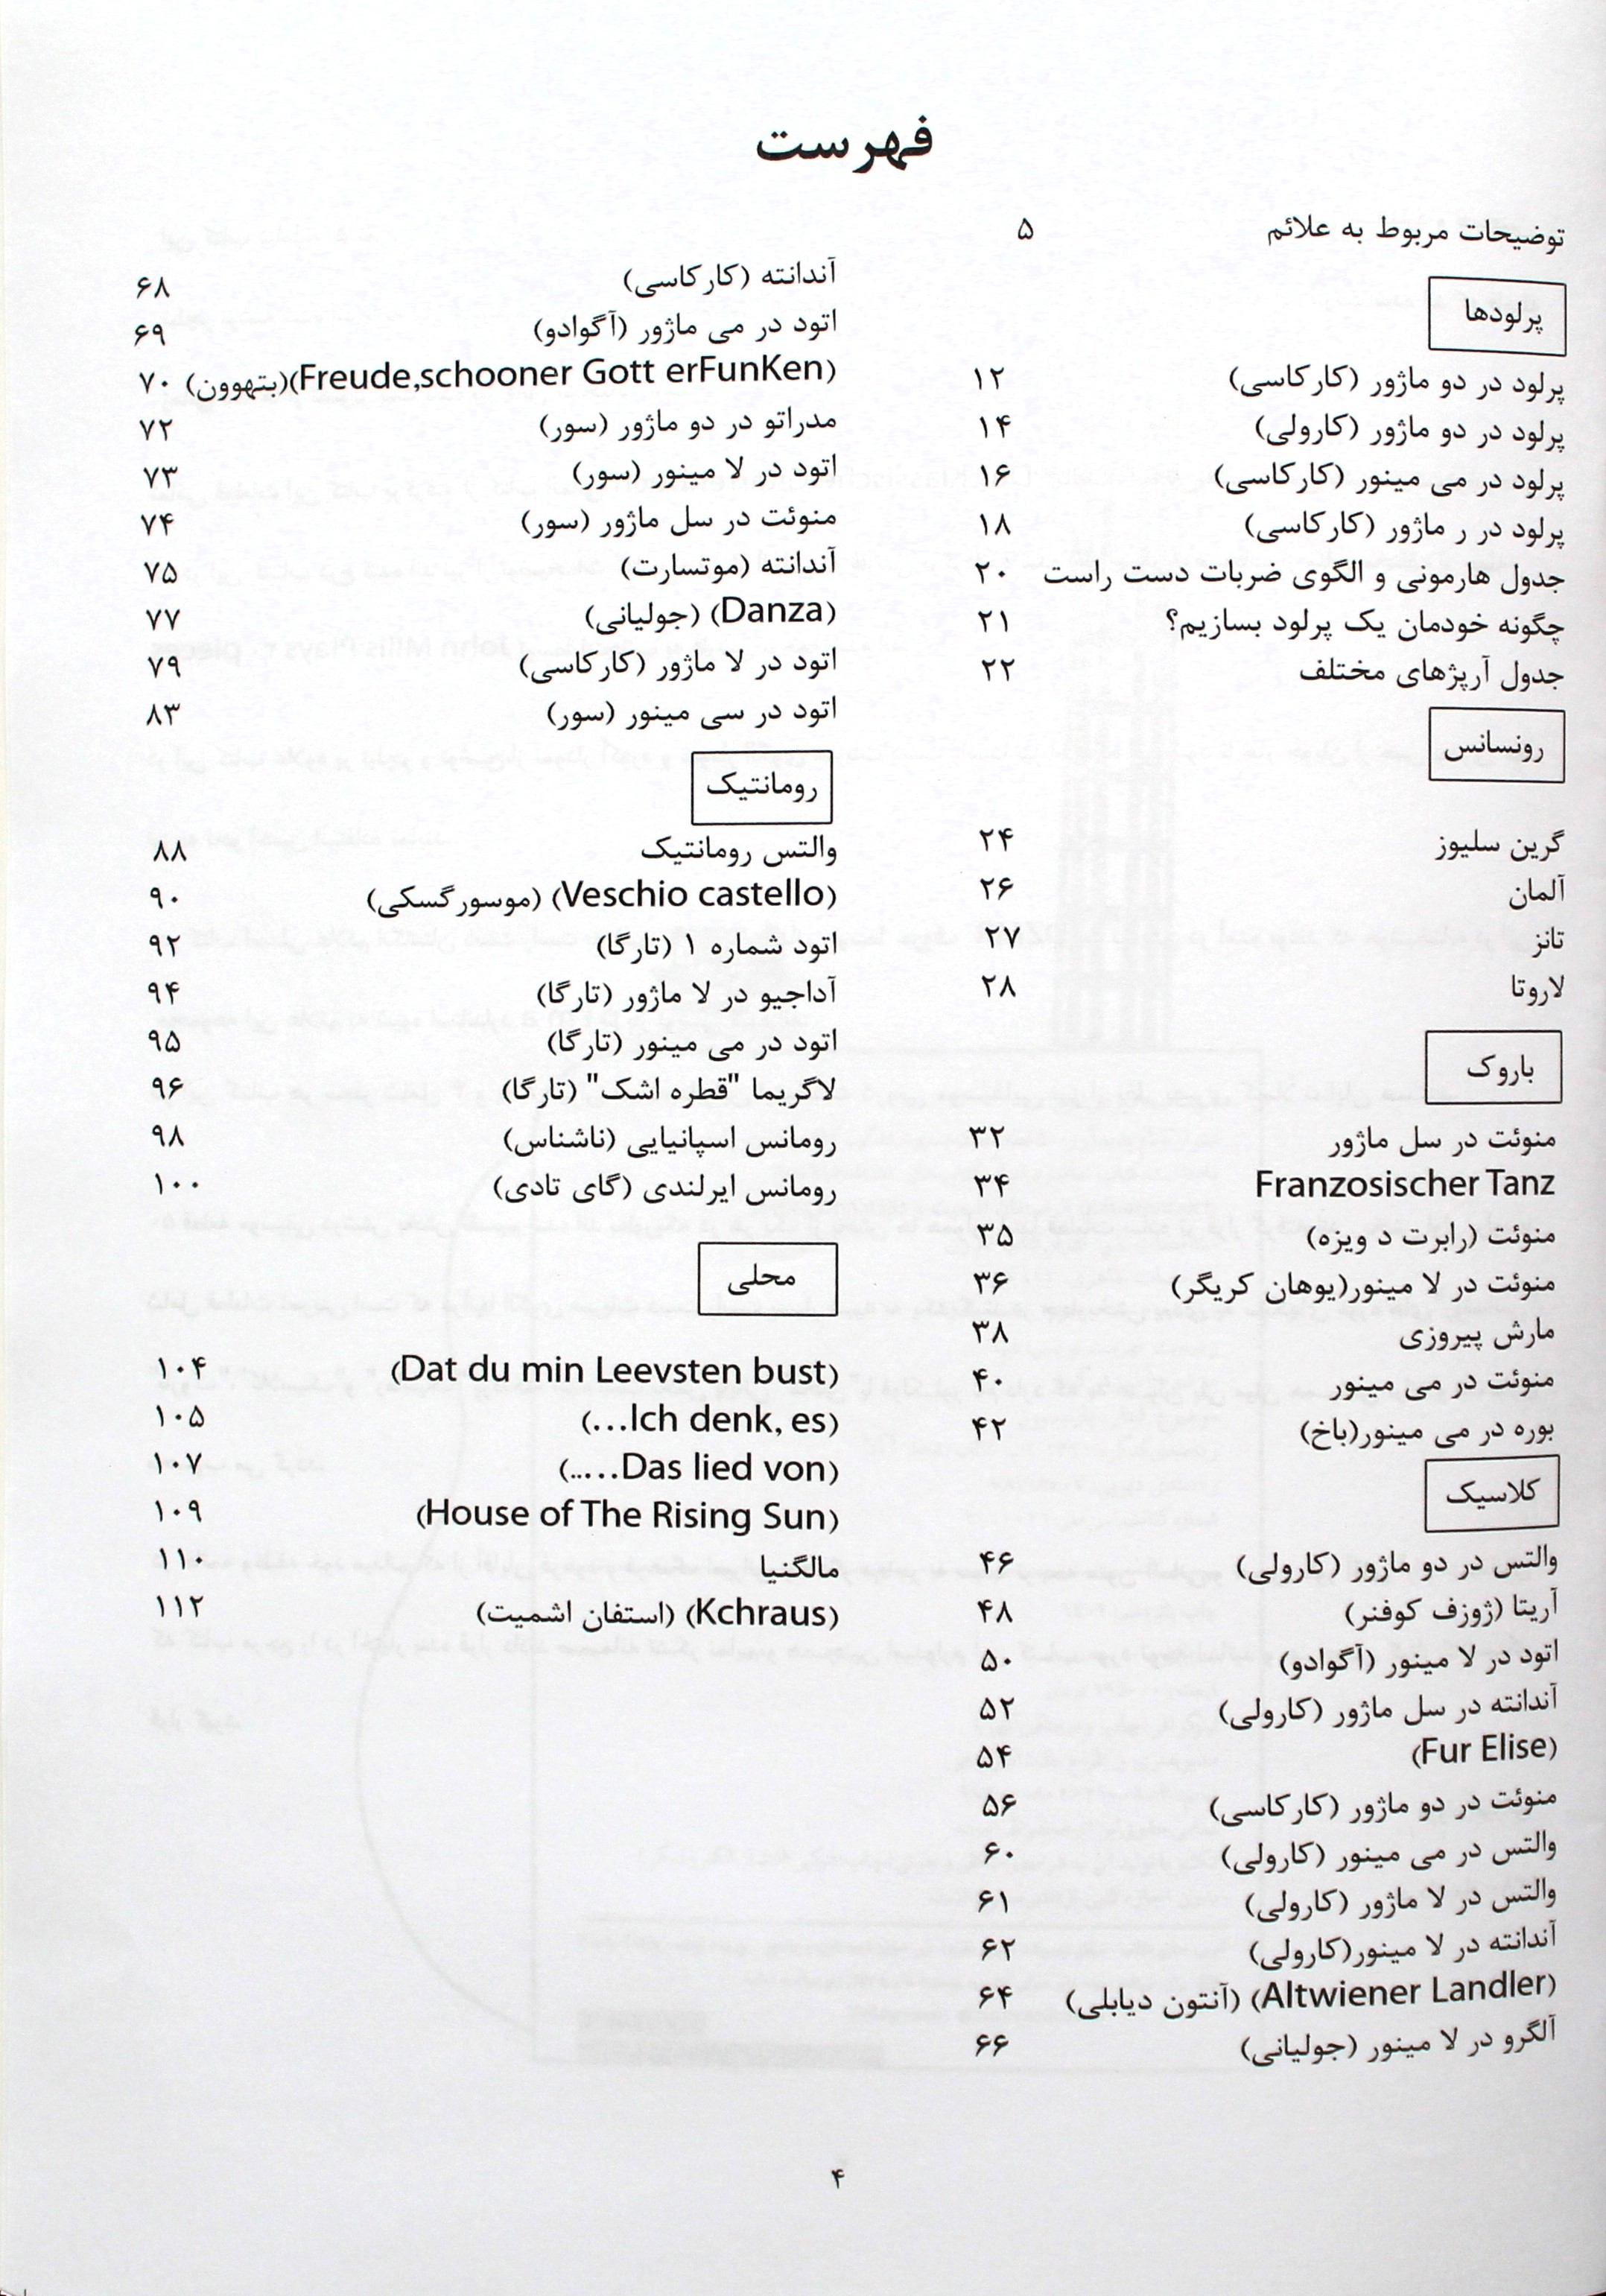 فهرست
توضیحات مربوط به علائم ۵
پرلودها
پرلود در دو ماژور (کارکاسی) ۱۲
پرلود در دو ماژور (کارولی) ۱۴
پرلود در می مینور (کارکاسی) ۱۶
پرلود در ر ماژور (کارکاسی) ۱۸
جدول هارمونی و الگوی ضربات دست راست ۲۰
چگونه خودمان یک پرلود بسازیم؟ ۲۱
جدول آرپژهای مختلف ۲۲
رونسانس
گرین سلیوز ۲۴
آلمان ۲۶
تانز ۲۷
لاروتا ۲۸
باروک
منوئت در سل ماژور ۳۲
Franzosischer Tanz ۳۴
منوئت (رابرت د ویزه) ۳۵
منوئت در لا مینور(یوهان کریگر) ۳۶
مارش پیروزی ۳۸
منوئت در می مینور ۴۰
بوره در می مینور(باخ) ۴۲
کلاسیک
والتس در دو ماژور (کارولی) ۴۶
آریتا (ژوزف کوفنر) ۴۸
اتود در لا مینور (آگوادو) ۵۰
آندانته در سل ماژور (کارولی) ۵۲
(Fur Elise) ۵۴
منوئت در دو ماژور (کارکاسی) ۵۶
والتس در می مینور (کارولی) ۶۰
والتس در لا ماژور (کارولی) ۶۱
آندانته در لا مینور(کارولی) ۶۲
(Altwiener Landler) (آنتون دیابلی) ۶۴
آلگرو در لا مینور (جولیانی) ۶۶
آندانته (کارکاسی) ۶۸
اتود در می ماژور (آگوادو) ۶۹
(Freude,schooner Gott erFunKen)(بتهوون) ۷۰
مدراتو در دو ماژور (سور) ۷۲
اتود در لا مینور (سور) ۷۳
منوئت در سل ماژور (سور) ۷۴
آندانته (موتسارت) ۷۵
(Danza) (جولیانی) ۷۷
اتود در لا ماژور (کارکاسی) ۷۹
اتود در سی مینور (سور) ۸۳
رومانتیک
والتس رومانتیک ۸۸
(Veschio castello) (موسورگسکی) ۹۰
اتود شماره ۱ (تارگا) ۹۲
آداجیو در لا ماژور (تارگا) ۹۴
اتود در می مینور (تارگا) ۹۵
لاگریما "قطره اشک" (تارگا) ۹۶
رومانس اسپانیایی (ناشناس) ۹۸
رومانس ایرلندی (گای تادی) ۱۰۰
محلی
(Dat du min Leevsten bust) ۱۰۴
(Ich denk, es...) ۱۰۵
(Das lied von.....) ۱۰۷
(House of The Rising Sun) ۱۰۹
مالگنیا ۱۱۰
(Kchraus) (استفان اشمیت) ۱۱۲
۴